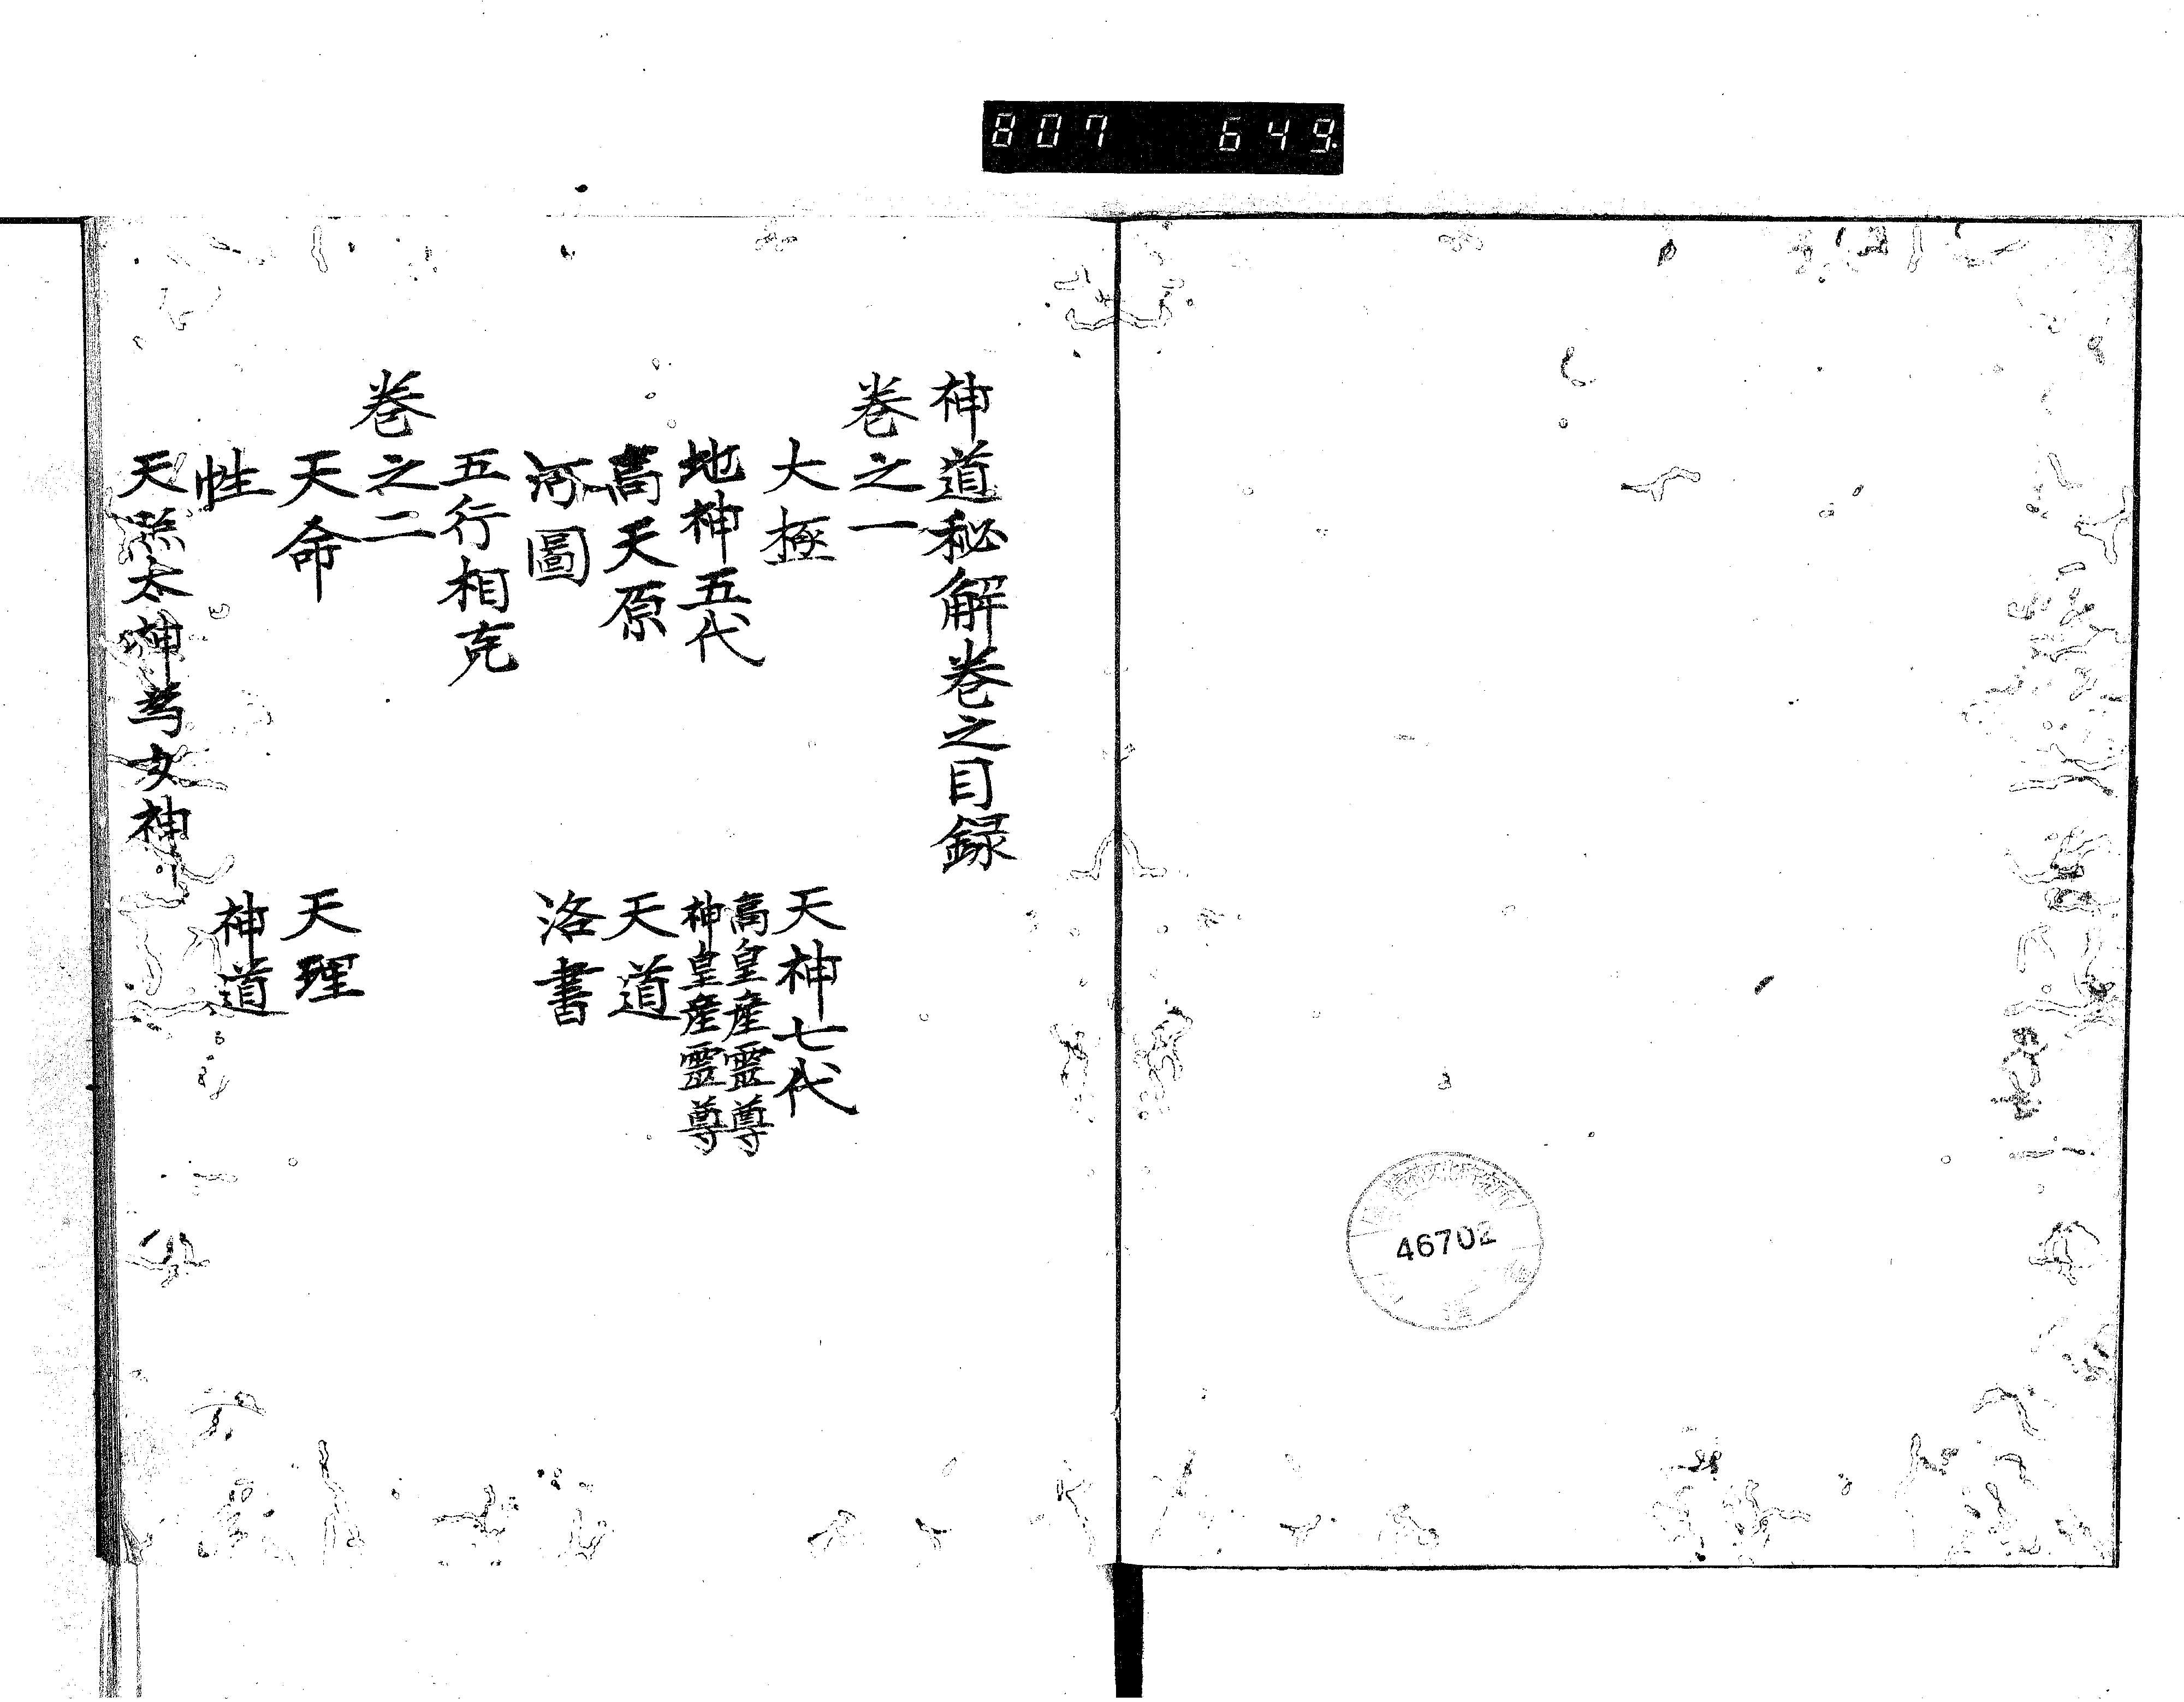 807 649
神道秘解巻之目録
巻之一
大極 天神七代
地神五代 高皇産霊尊
神皇産霊尊
高天原 天道
河圖 洛書
五行相克
巻之二
天命 天理
性 神道
天照太神為女神
46702